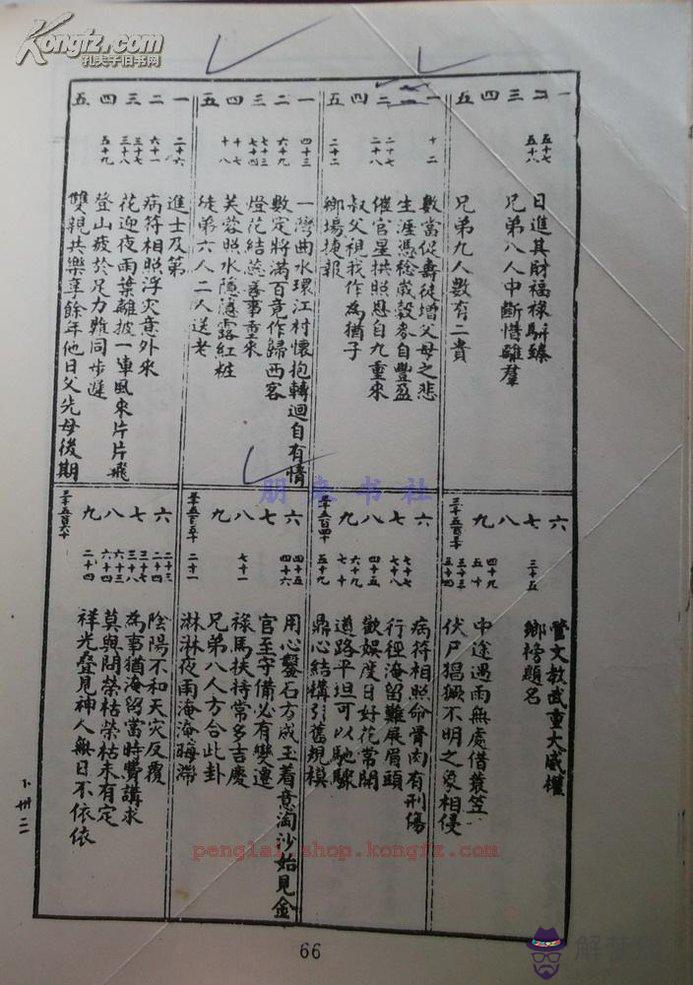 Kongfz.com
孔夫子旧书网
一
二
五十七
五十八
日進其財福祿駢臻
三
兄弟八人中斷惜離羣
四
五
兄弟九人數有二貴
一
十二
數當促壽徒增父母之悲
二
生涯憑稔歲穀麥自豐盈
三
二十七
二十八
催官星拱照恩自九重來
四
叔父祖我作為猶子
五
二十二
鄉場捷報
一
四十三
一灣曲水環江村懷抱轉迴自有情
二
六十九
數定將滿百竟作歸西客
三
七十三
七十四
燈花結蕊喜事重來
四
十七
十八
芙蓉照水隱隱露紅粧
五
徒弟六人二人送老
一
二十六
進士及第
二
六十一
病符相照浮灾意外來
三
三十七
三十八
花迎夜雨葉離披一陣風來片片飛
四
五十九
登山疲於足力難同步遲
五
雙親共樂享餘年他日父先母後期
六
七
三十五
管文教武重大威權
鄉榜題名
八
四十九
五十
中途遇雨無處借蓑笠
九
五十三
五十四
伏尸猖獗不明之象相侵
六
病符相照命骨肉有刑傷
七
七十七
七十八
行徑淹留難展眉頭
八
四十五
歡娛度日好花常開
九
六十九
七十
道路平坦可以馳驟
五十九
鼎心結構引舊規模
六
四十五
四十六
用心鑿石方成玉着意淘沙始見金
七
官至守備必有變遷
八
七十一
祿馬扶持常多吉慶
九
兄弟八人方合此卦
二十一
淋淋夜雨淹淹晦滯
六
二十三
二十四
陰陽不和天灾反覆
七
三十七
三十八
為事猶淹留當時費講求
八
六十三
六十四
莫與問榮枯榮枯未有定
九
二十四
祥光叠見神人無日不依依
卜卅二
朋来书社
penglai.shop.kongfz.com
66